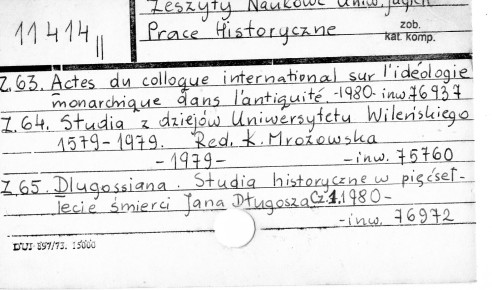 Zeszyty Naukowe Uniw. Jagiell.
11414 II
Prace Historyczne
zob.
kat. komp.
Z.63. Actes du colloque international sur l'idéologie
monarchique dans l'antiquité. -1980- inw.76937
Z.64. Studia z dziejów Uniwersytetu Wileńskiego
1579-1979. Red. K. Mrozowska
-1979- -inw. 75760
Z.65. Dlugossiana. Studia historyczne w pięćset-
lecie śmierci Jana Długosza Cz.1. 1980-
-inw. 76972
DUJ 897/73. 15000